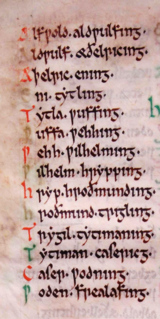 Ælfƿold. aldƿulfing.
Aldƿulf. æðelricing.
Æþelric. ening.
Eni. tytling.
Tytla. ƿuffing.
Ƿuffa. ƿehhing.
Ƿehh. ƿilhelming.
Ƿilhelm. hrypping.
Hryp. hroðmunding.
hroðmund. trygling.
Trygil. tyttmaning.
Tyttman. casericg.
Caser. ƿodning.
Ƿoden. frealafing.